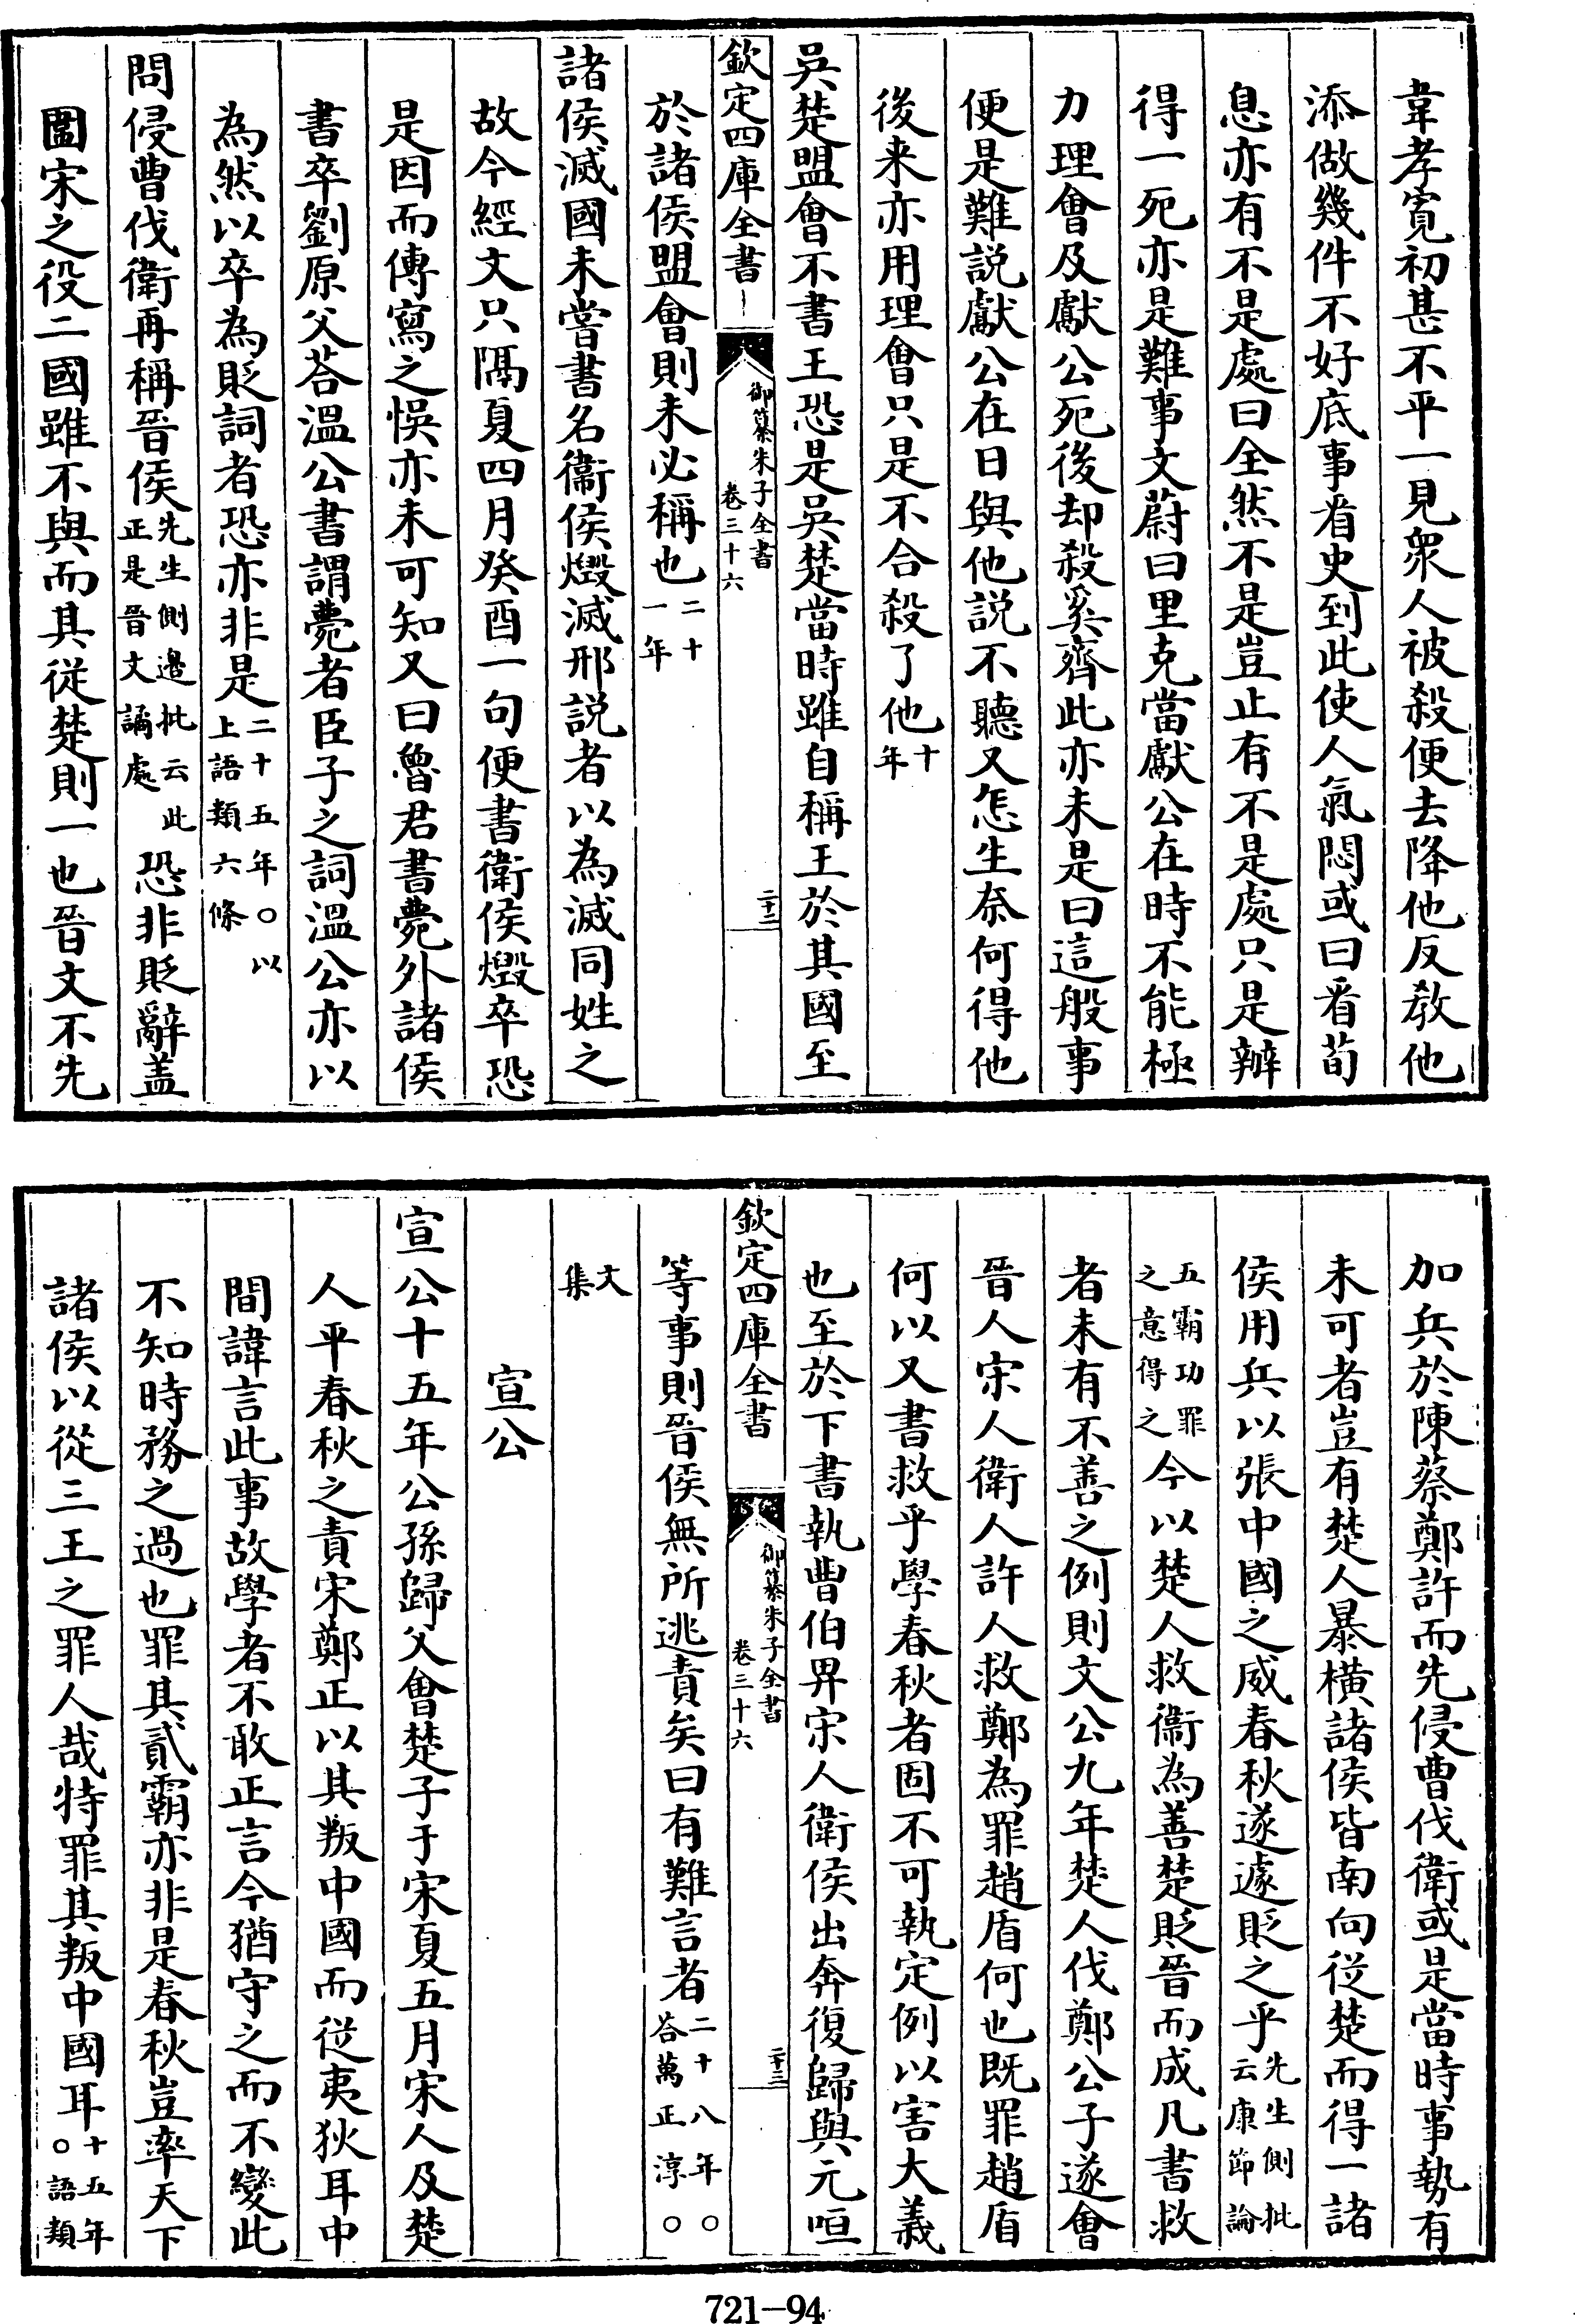 韋孝寛初甚不平一見衆人被殺便去降他反教他
添做幾件不好底事看史到此使人氣悶或曰看荀
息亦有不是處曰全然不是豈止有不是處只是辦
得一死亦是難事文蔚曰里克當獻公在時不能極
力理會及獻公死後却殺奚齊此亦未是曰這般事
便是難説獻公在日與他説不聽又怎生奈何得他
後来亦用理會只是不合殺了他十年
吳楚盟會不書王恐是吳楚當時雖自稱王於其國至
欽定四庫全書
御纂朱子全書
卷三十六
二十三
於諸侯盟會則未必稱也二十一年
諸侯滅國未嘗書名衞侯燬滅邢説者以為滅同姓之
故今經文只隔夏四月癸酉一句便書衛侯燬卒恐
是因而傳寫之悞亦未可知又曰魯君書薨外諸侯
書卒劉原父荅溫公書謂薨者臣子之詞溫公亦以
為然以卒為貶詞者恐亦非是二十五年○以上語類六條
問侵曹伐衛再稱晉侯先生側邉批云此正是晉文譎處恐非貶辭盖
圍宋之役二國雖不與而其從楚則一也晉文不先
加兵於陳蔡鄭許而先侵曹伐衛或是當時事勢有
未可者豈有楚人暴橫諸侯皆南向從楚而得一諸
侯用兵以張中國之威春秋遂遽貶之乎先生側批云康節論
五霸功罪之意得之今以楚人救衞為善楚貶晉而成凡書救
者未有不善之例則文公九年楚人伐鄭公子遂會
晉人宋人衛人許人救鄭為罪趙盾何也既罪趙盾
何以又書救乎學春秋者固不可執定例以害大義
也至於下書執曹伯畀宋人衛侯出奔復歸與元咺
欽定四庫全書
御纂朱子全書
卷三十六
二十三
等事則晉侯無所逃責矣曰有難言者二十八年○荅萬正淳○
文集
宣公
宣公十五年公孫歸父會楚子于宋夏五月宋人及楚
人平春秋之責宋鄭正以其叛中國而從夷狄耳中
間諱言此事故學者不敢正言今猶守之而不變此
不知時務之過也罪其貳霸亦非是春秋豈率天下
諸侯以從三王之罪人哉特罪其叛中國耳十五年○語類
721-94